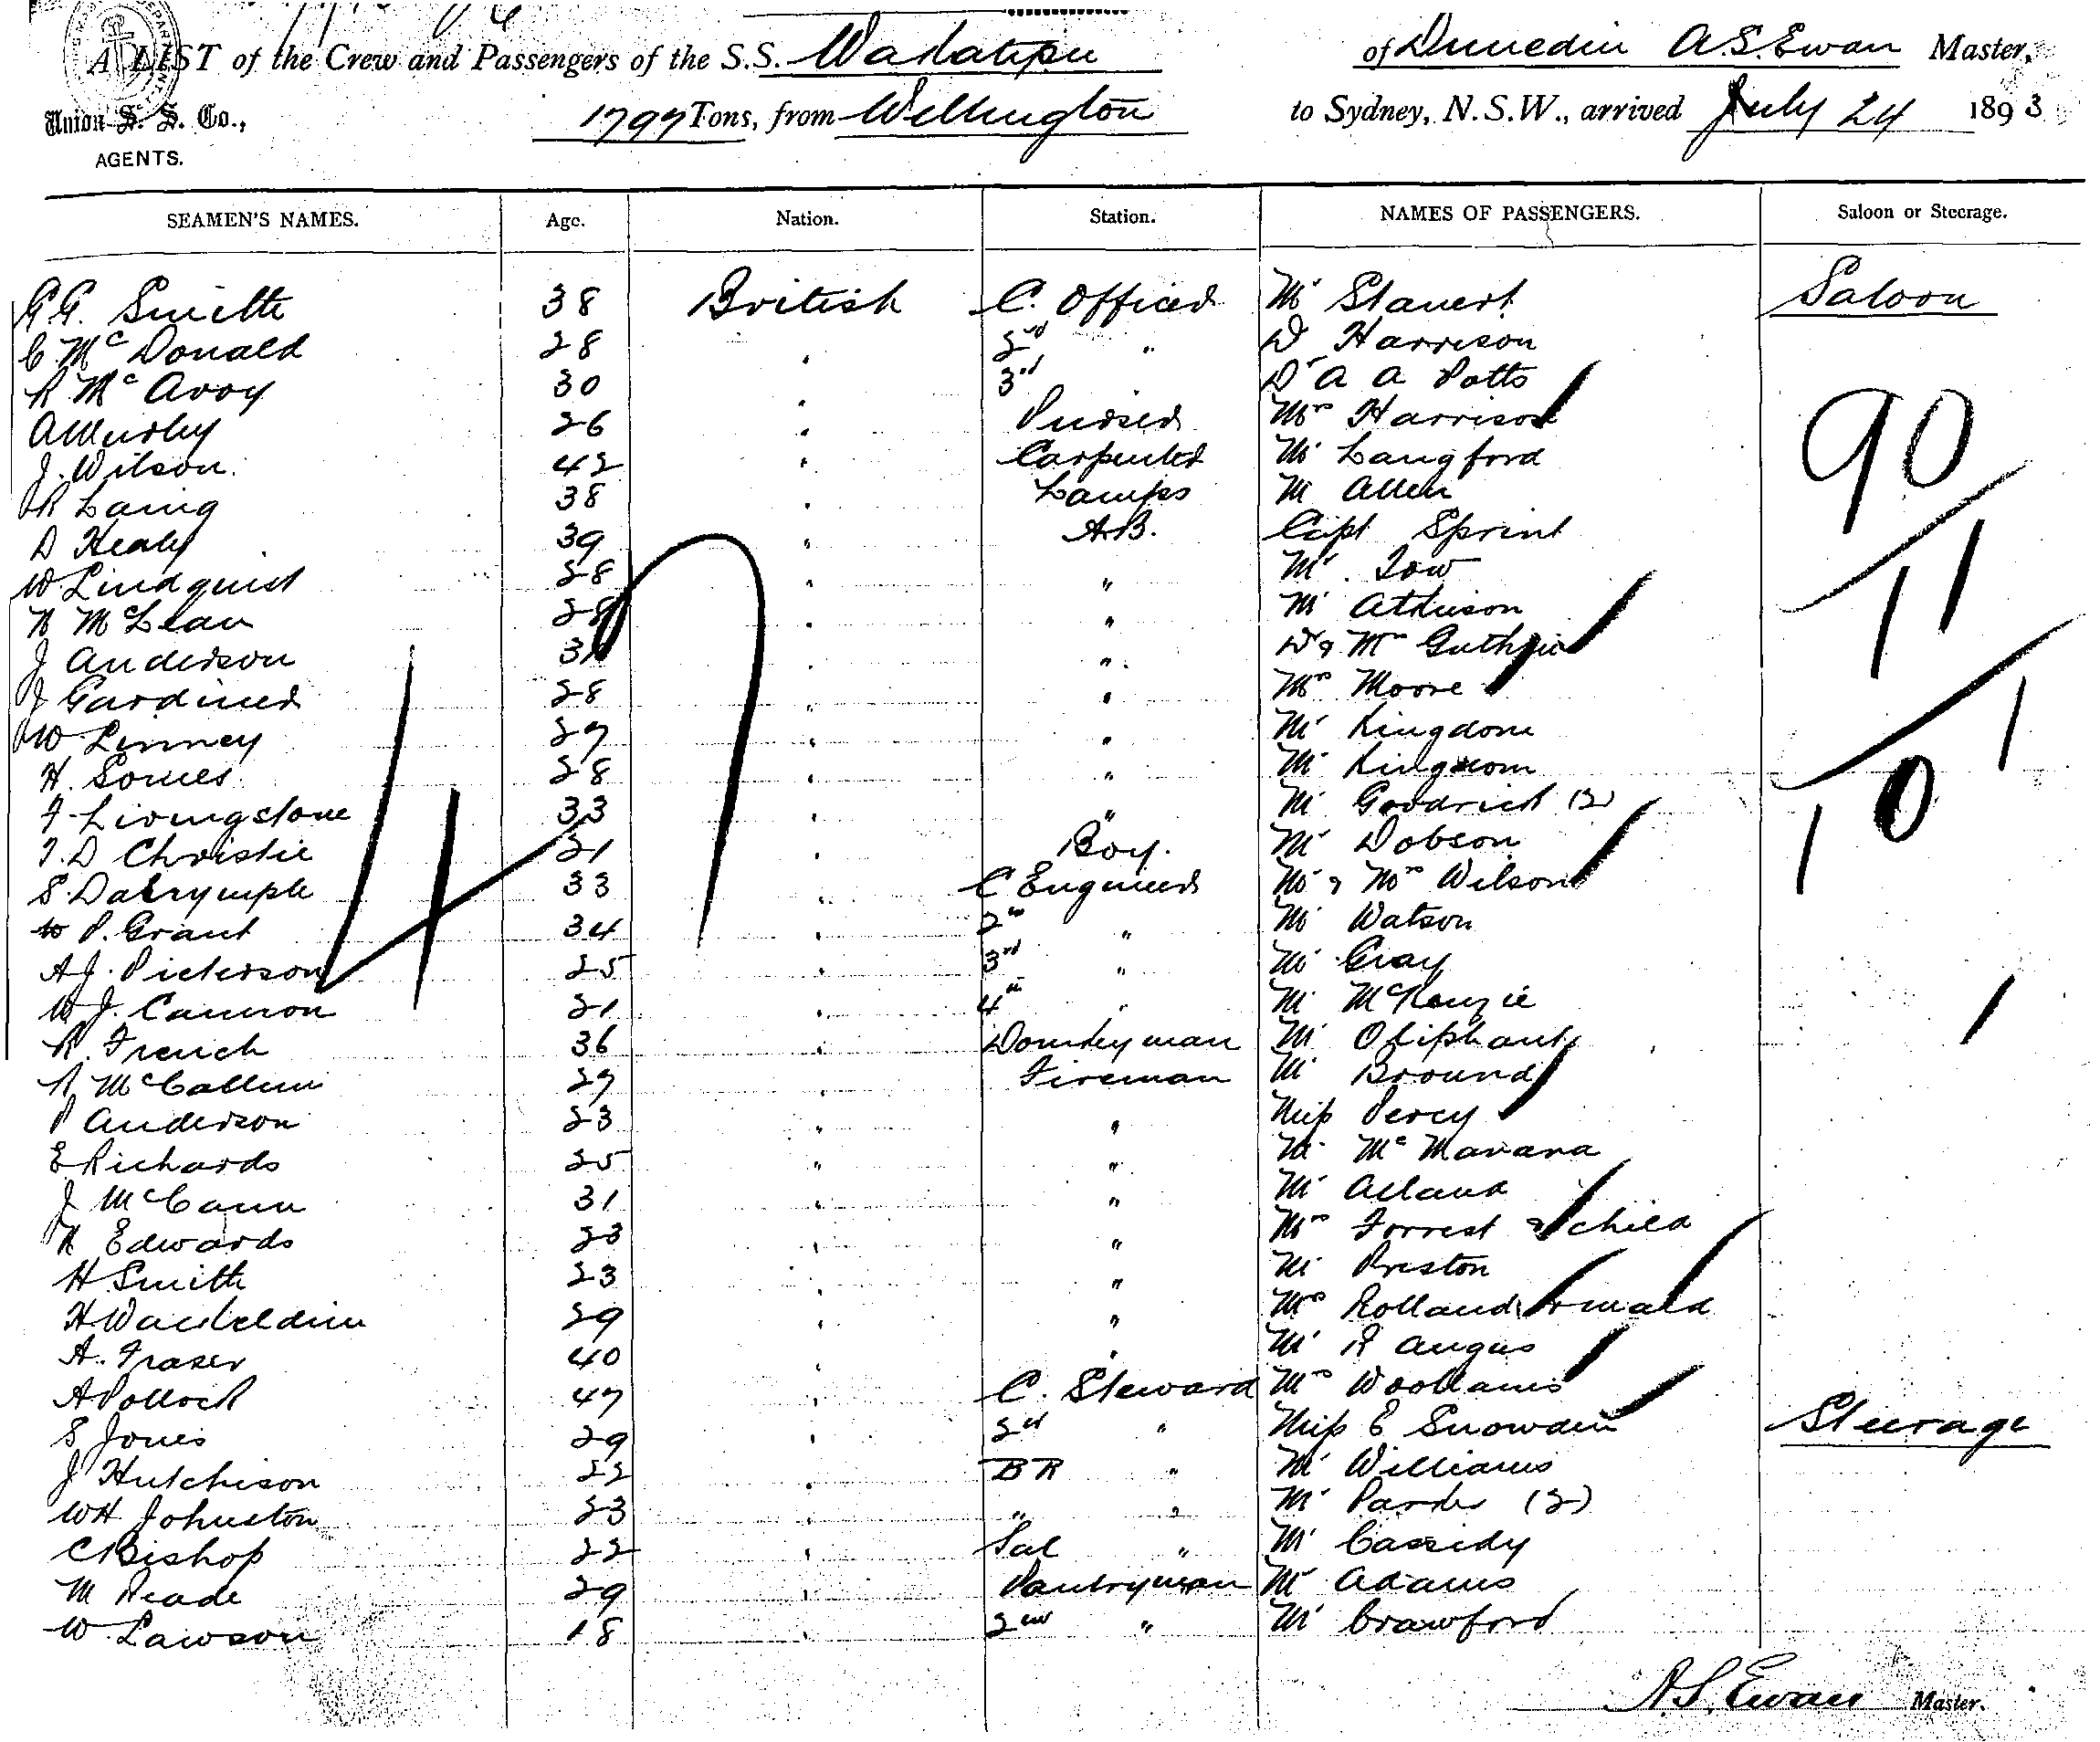 A LIST of the Crew and Passengers of the S.S. Wakatipu of Dunedin A.S. Ewan Master,
Union S. S. Co., 1797 Tons, from Wellington to Sydney, N.S.W., arrived July 24 1893
AGENTS.
SEAMEN'S NAMES. Age. Nation. Station. NAMES OF PASSENGERS. Saloon or Steerage.
G.G. Smith 38 British C. Officer Mr Stauert Saloon
C McDonald 28 " 2nd " Dr Harrison
R McAvoy 30 " 3rd " Dr A A Potts
A Murby 26 " Purser Mrs Harrison 90
J. Wilson 42 " Carpenter Mr Langford
R Laing 38 " Lamps Mr Allen
D Healy 39 " A.B. Capt Sprint 11
W. Lindquist 28 " " Mr Tow
N McLean 28 " " Mr Atkinson
J Anderson 31 " " Dr & Mrs Guthrie
J Gardiner 28 " " Mrs Moore 1
W Linney 27 " " Mr Kingdom
H. Somes 28 " " Mr Kingdom 10
F. Livingstone 33 " " Mr Goodrick (2)
T.D Christie 21 " Boy. Mr Dobson
S. Dalrymple 33 " C Engineer Mr & Mrs Wilson
P. Grant 34 " 2nd " Mr Watson
A.J. Pieterson 25 " 3rd " Mr Gray
W.J. Cannon 21 " 4th " Mr McKenzie
R. French 36 " Donkeyman Mr Oliphant
R McCallum 27 Fireman Mr Bround
P Anderson 23 " " Miss Percy
E Richards 25 " " Mr McManara
J McCann 31 " " Mr Alland
R Edwards 23 " " Mrs Forrest & child
H Smith 23 " " Mr Preston
H 29 " " Mrs Rolland & maid
A. Fraser 40 " " Mr R Angus
A Pollock 47 " C. Steward Mrs Woollams
S Jones 29 " 2nd " Miss E Snowden Steerage
J Hutchison 22 " BR " Mr Williams
WH Johnston 23 " " " Mr Pardo (2)
C Bishop 22 " Sal " Mr Cassidy
M Reade 29 " Pantryman Mr Adams
W. Lawson 18 " 2nd " Mr Crawford
A.S. Ewan Master.